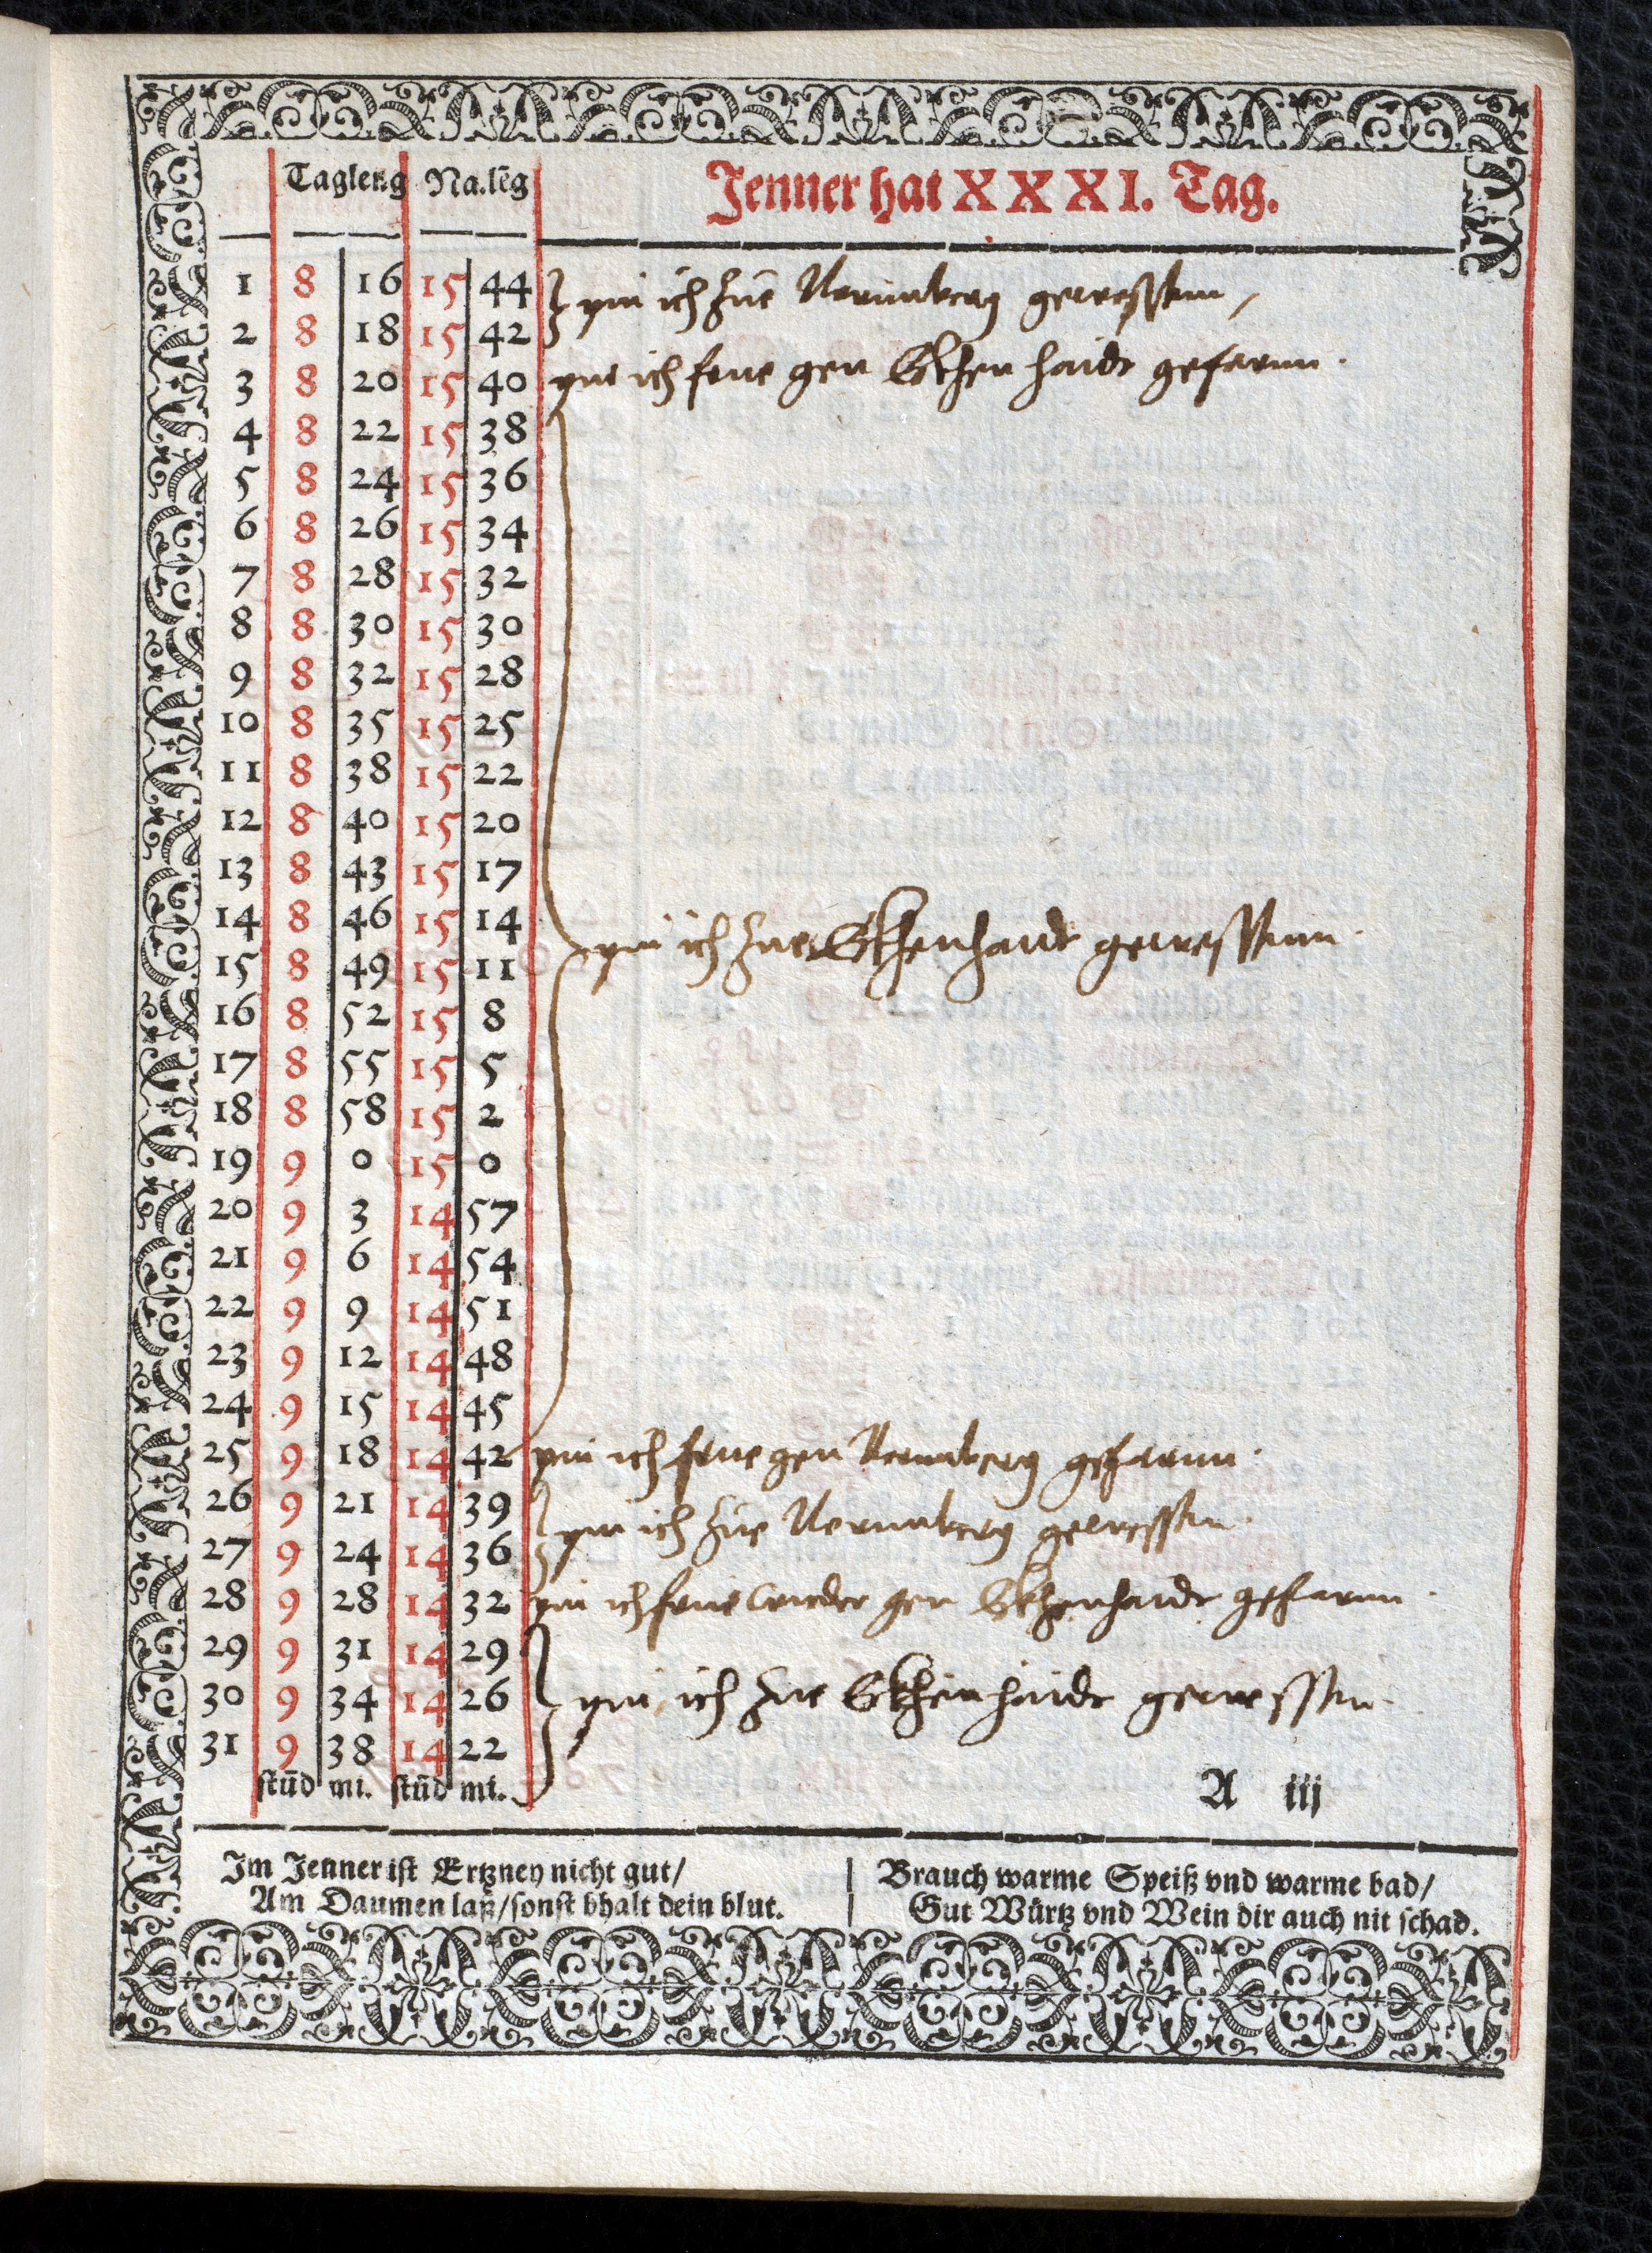 Tagleng Na.lēg Jenner hat XXXI. Tag.
1 8 16 15 44 pin ich Zue Nerunberg gewessenn,
2 8 18 15 42
3 8 20 15 40 pin ich frue gen Ekhenhaidt gefarnn.
4 8 22 15 38
5 8 24 15 36
6 8 26 15 34
7 8 28 15 32
8 8 30 15 30
9 8 32 15 28
10 8 35 15 25
11 8 38 15 22
12 8 40 15 20
13 8 43 15 17
14 8 46 15 14 pin ich Zue Ekhenhaidt gewessenn.
15 8 49 15 11
16 8 52 15 8
17 8 55 15 5
18 8 58 15 2
19 9 0 15 0
20 9 3 14 57
21 9 6 14 54
22 9 9 14 51
23 9 12 14 48
24 9 15 14 45
25 9 18 14 42 pin ich frue gen Nerunberg gefarnn.
26 9 21 14 39 pin ich Zue Nerunberg gewessen.
27 9 24 14 36
28 9 28 14 32 pin ich frue wieder gen Ekhenhaidt gefarnn.
29 9 31 14 29
30 9 34 14 26 pin ich Zue Ekhenhaidt gewessen.
31 9 38 14 22
stūd mi. stūd mi.
A iij
Im Jenner ist Ertzney nicht gut/
Am Daumen laß/sonst bhalt dein blut.
Brauch warme Speiß vnd warme bad/
Gut Würtz vnd Wein dir auch nit schad.